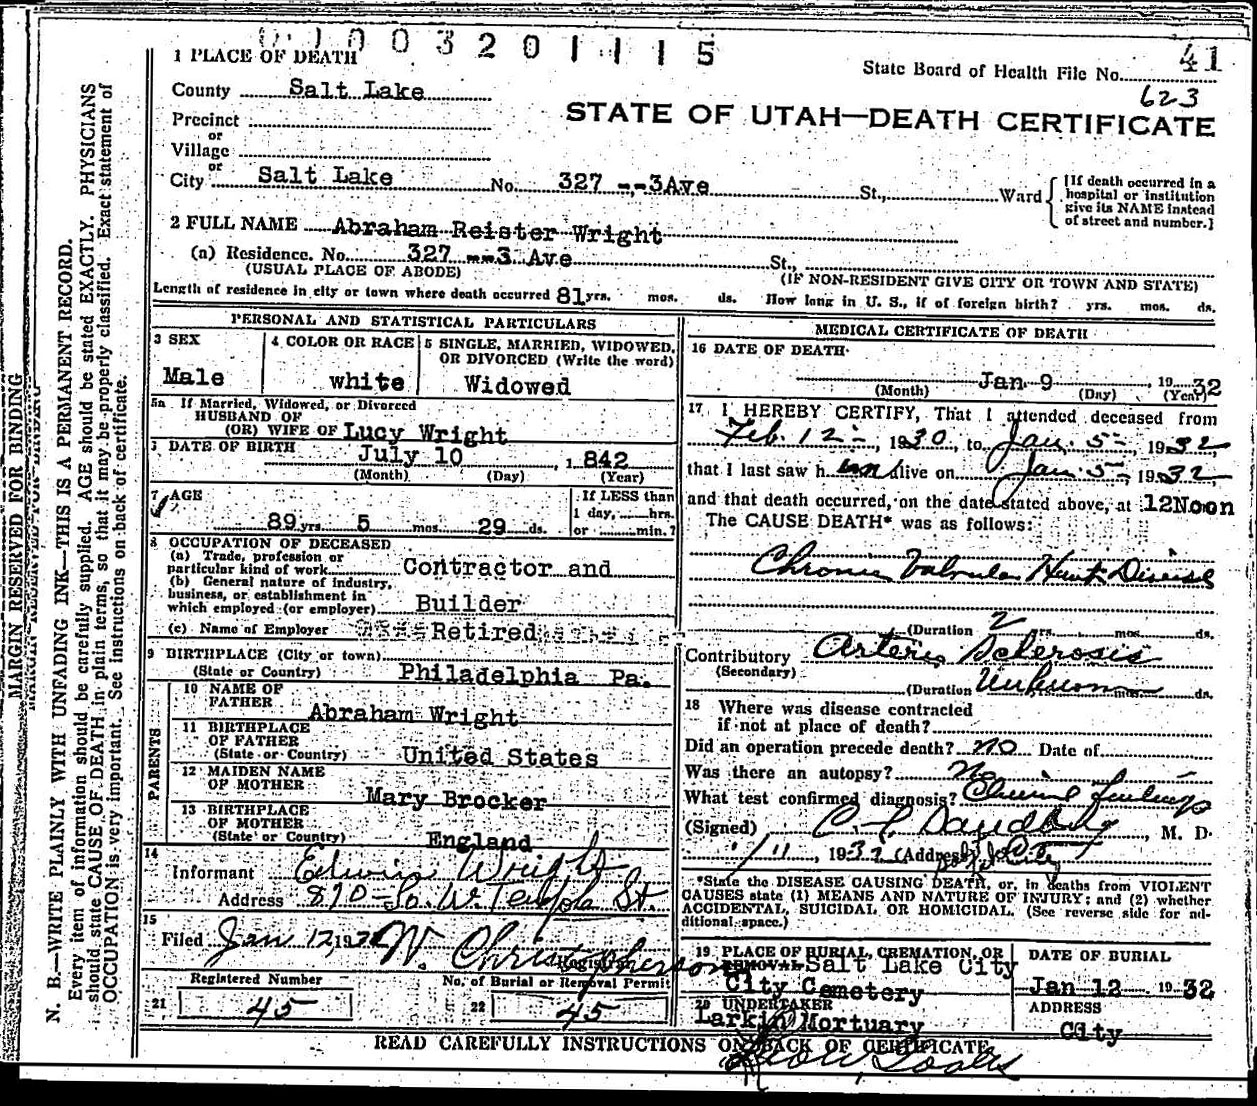 01003201115
41
1 PLACE OF DEATH
State Board of Health File No.
623
County Salt Lake
STATE OF UTAH—DEATH CERTIFICATE
Precinct
or
Village
or
City Salt Lake No. 327 --3Ave St., Ward
[If death occurred in a hospital or institution give its NAME instead of street and number.]
2 FULL NAME Abraham Reister Wright
(a) Residence. No. 327 --3 Ave St.,
(USUAL PLACE OF ABODE) (IF NON-RESIDENT GIVE CITY OR TOWN AND STATE)
Length of residence in city or town where death occurred 81 yrs. mos. ds. How long in U. S., if of foreign birth? yrs. mos. ds.
PERSONAL AND STATISTICAL PARTICULARS
3 SEX
Male
4 COLOR OR RACE
white
5 SINGLE, MARRIED, WIDOWED, OR DIVORCED (Write the word)
Widowed
5a If Married, Widowed, or Divorced
HUSBAND OF
(OR) WIFE OF Lucy Wright
DATE OF BIRTH July 10, 1842
(Month) (Day) (Year)
7 AGE
89 yrs 5 mos 29 ds.
If LESS than
1 day, hrs.
or min.?
8 OCCUPATION OF DECEASED
(a) Trade, profession or
particular kind of work Contractor and
(b) General nature of industry,
business, or establishment in
which employed (or employer) Builder
(c) Name of Employer Retired
9 BIRTHPLACE (City or town)
(State or Country) Philadelphia Pa.
PARENTS
10 NAME OF
FATHER Abraham Wright
11 BIRTHPLACE
OF FATHER
(State or Country) United States
12 MAIDEN NAME
OF MOTHER Mary Brocker
13 BIRTHPLACE
OF MOTHER
(State or Country) England
14
Informant Edwin Wright
Address 870 So. W. Temple St.
15
Filed Jan 12, 19 W. Christopherson
Registrar
Registered Number
21 45
No. of Burial or Removal Permit
22 45
MEDICAL CERTIFICATE OF DEATH
16 DATE OF DEATH
Jan 9 1932
(Month) (Day) (Year)
17 I HEREBY CERTIFY, That I attended deceased from
Feb. 12, 1930, to Jan. 5, 1932
that I last saw him alive on Jan. 5, 1932
and that death occurred, on the date stated above, at 12Noon
The CAUSE DEATH* was as follows:
Chronic Valvular Heart Disease
(Duration 2 yrs. mos. ds.
Contributory Arterio Sclerosis
(Secondary)
(Duration Unknown mos. ds.
18 Where was disease contracted
if not at place of death?
Did an operation precede death? no Date of
Was there an autopsy? No
What test confirmed diagnosis? Clinical findings
(Signed) , M. D.
1/11, 1932 (Address) City
*State the DISEASE CAUSING DEATH, or, in deaths from VIOLENT
CAUSES state (1) MEANS AND NATURE OF INJURY; and (2) whether
ACCIDENTAL, SUICIDAL OR HOMICIDAL. (See reverse side for additional space.)
19 PLACE OF BURIAL, CREMATION, OR
REMOVAL Salt Lake City
City Cemetery
DATE OF BURIAL
Jan 12 1932
20 UNDERTAKER
Larkin Mortuary
ADDRESS
City
READ CAREFULLY INSTRUCTIONS ON BACK OF CERTIFICATE
MARGIN RESERVED FOR BINDING
N. B.—WRITE PLAINLY WITH UNFADING INK—THIS IS A PERMANENT RECORD.
Every item of information should be carefully supplied. AGE should be stated EXACTLY. PHYSICIANS
should state CAUSE OF DEATH in plain terms, so that it may be properly classified. Exact statement of
OCCUPATION is very important. See instructions on back of certificate.